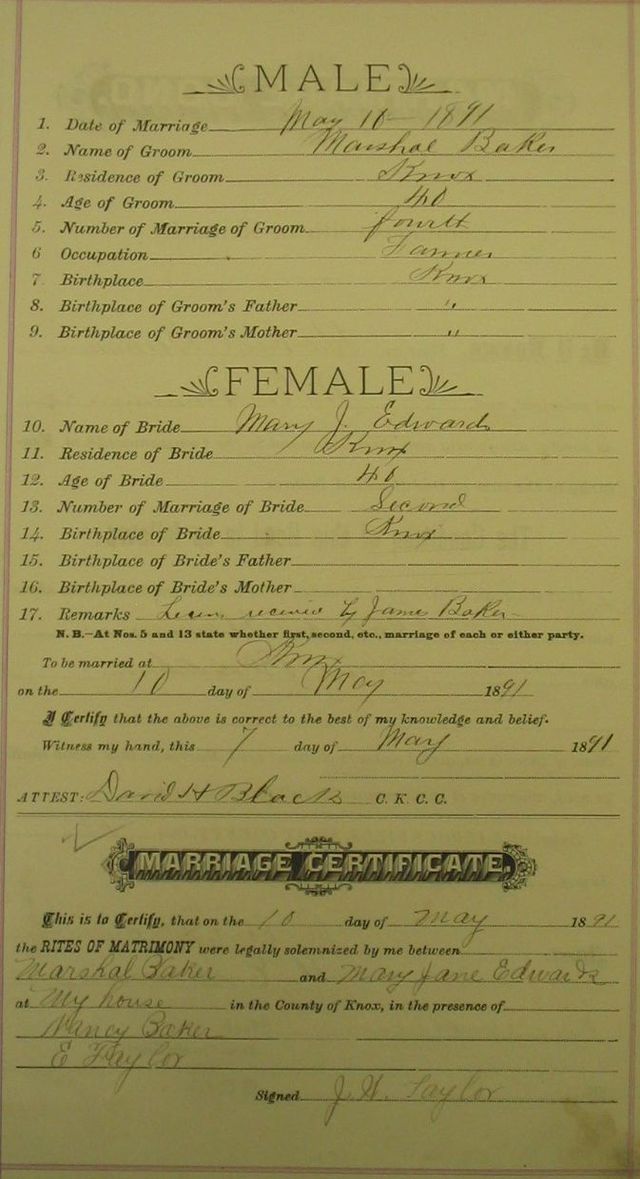 MALE
1. Date of Marriage May 10 - 1891
2. Name of Groom Marshal Baker
3. Residence of Groom Knox
4. Age of Groom 40
5. Number of Marriage of Groom fourth
6 Occupation Farmer
7 Birthplace Knox
8. Birthplace of Groom's Father "
9. Birthplace of Groom's Mother "
FEMALE
10. Name of Bride Mary J. Edwards
11. Residence of Bride Knox
12. Age of Bride 40
13. Number of Marriage of Bride Second
14. Birthplace of Bride Knox
15. Birthplace of Bride's Father
16. Birthplace of Bride's Mother
17. Remarks received by James Baker
N. B.—At Nos. 5 and 13 state whether first, second, etc., marriage of each or either party.
To be married at Knox
on the 10 day of May 1891
I Certify that the above is correct to the best of my knowledge and belief.
Witness my hand, this 7 day of May 1891
ATTEST: David H Black C. K. C. C.
MARRIAGE CERTIFICATE.
This is to Certify, that on the 10 day of May 1891
the RITES OF MATRIMONY were legally solemnized by me between
Marshal Baker and Mary Jane Edwards
at My house in the County of Knox, in the presence of
Nancy Baker
E Taylor
Signed J. H. Taylor